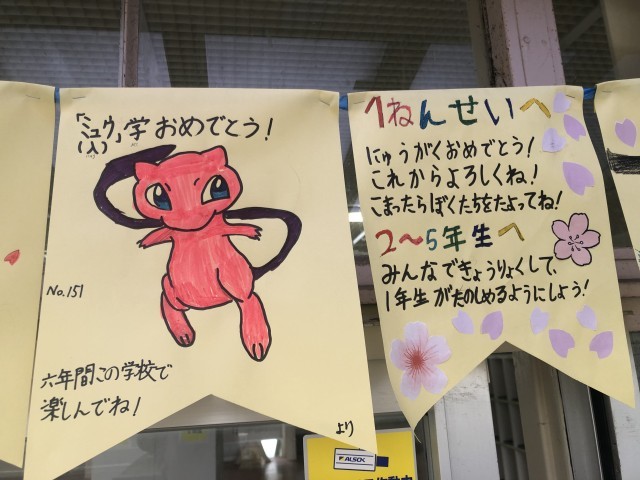 「ミュウ」学おめでとう!
(入)
No.151
六年間この学校で
楽しんでね!
より
1ねんせいへ
にゅうがくおめでとう!
これからよろしくね!
こまったらぼくたちをたよってね!
2〜5年生へ
みんなできょうりょくして、
1年生がたのしめるようにしよう!
ALSOK